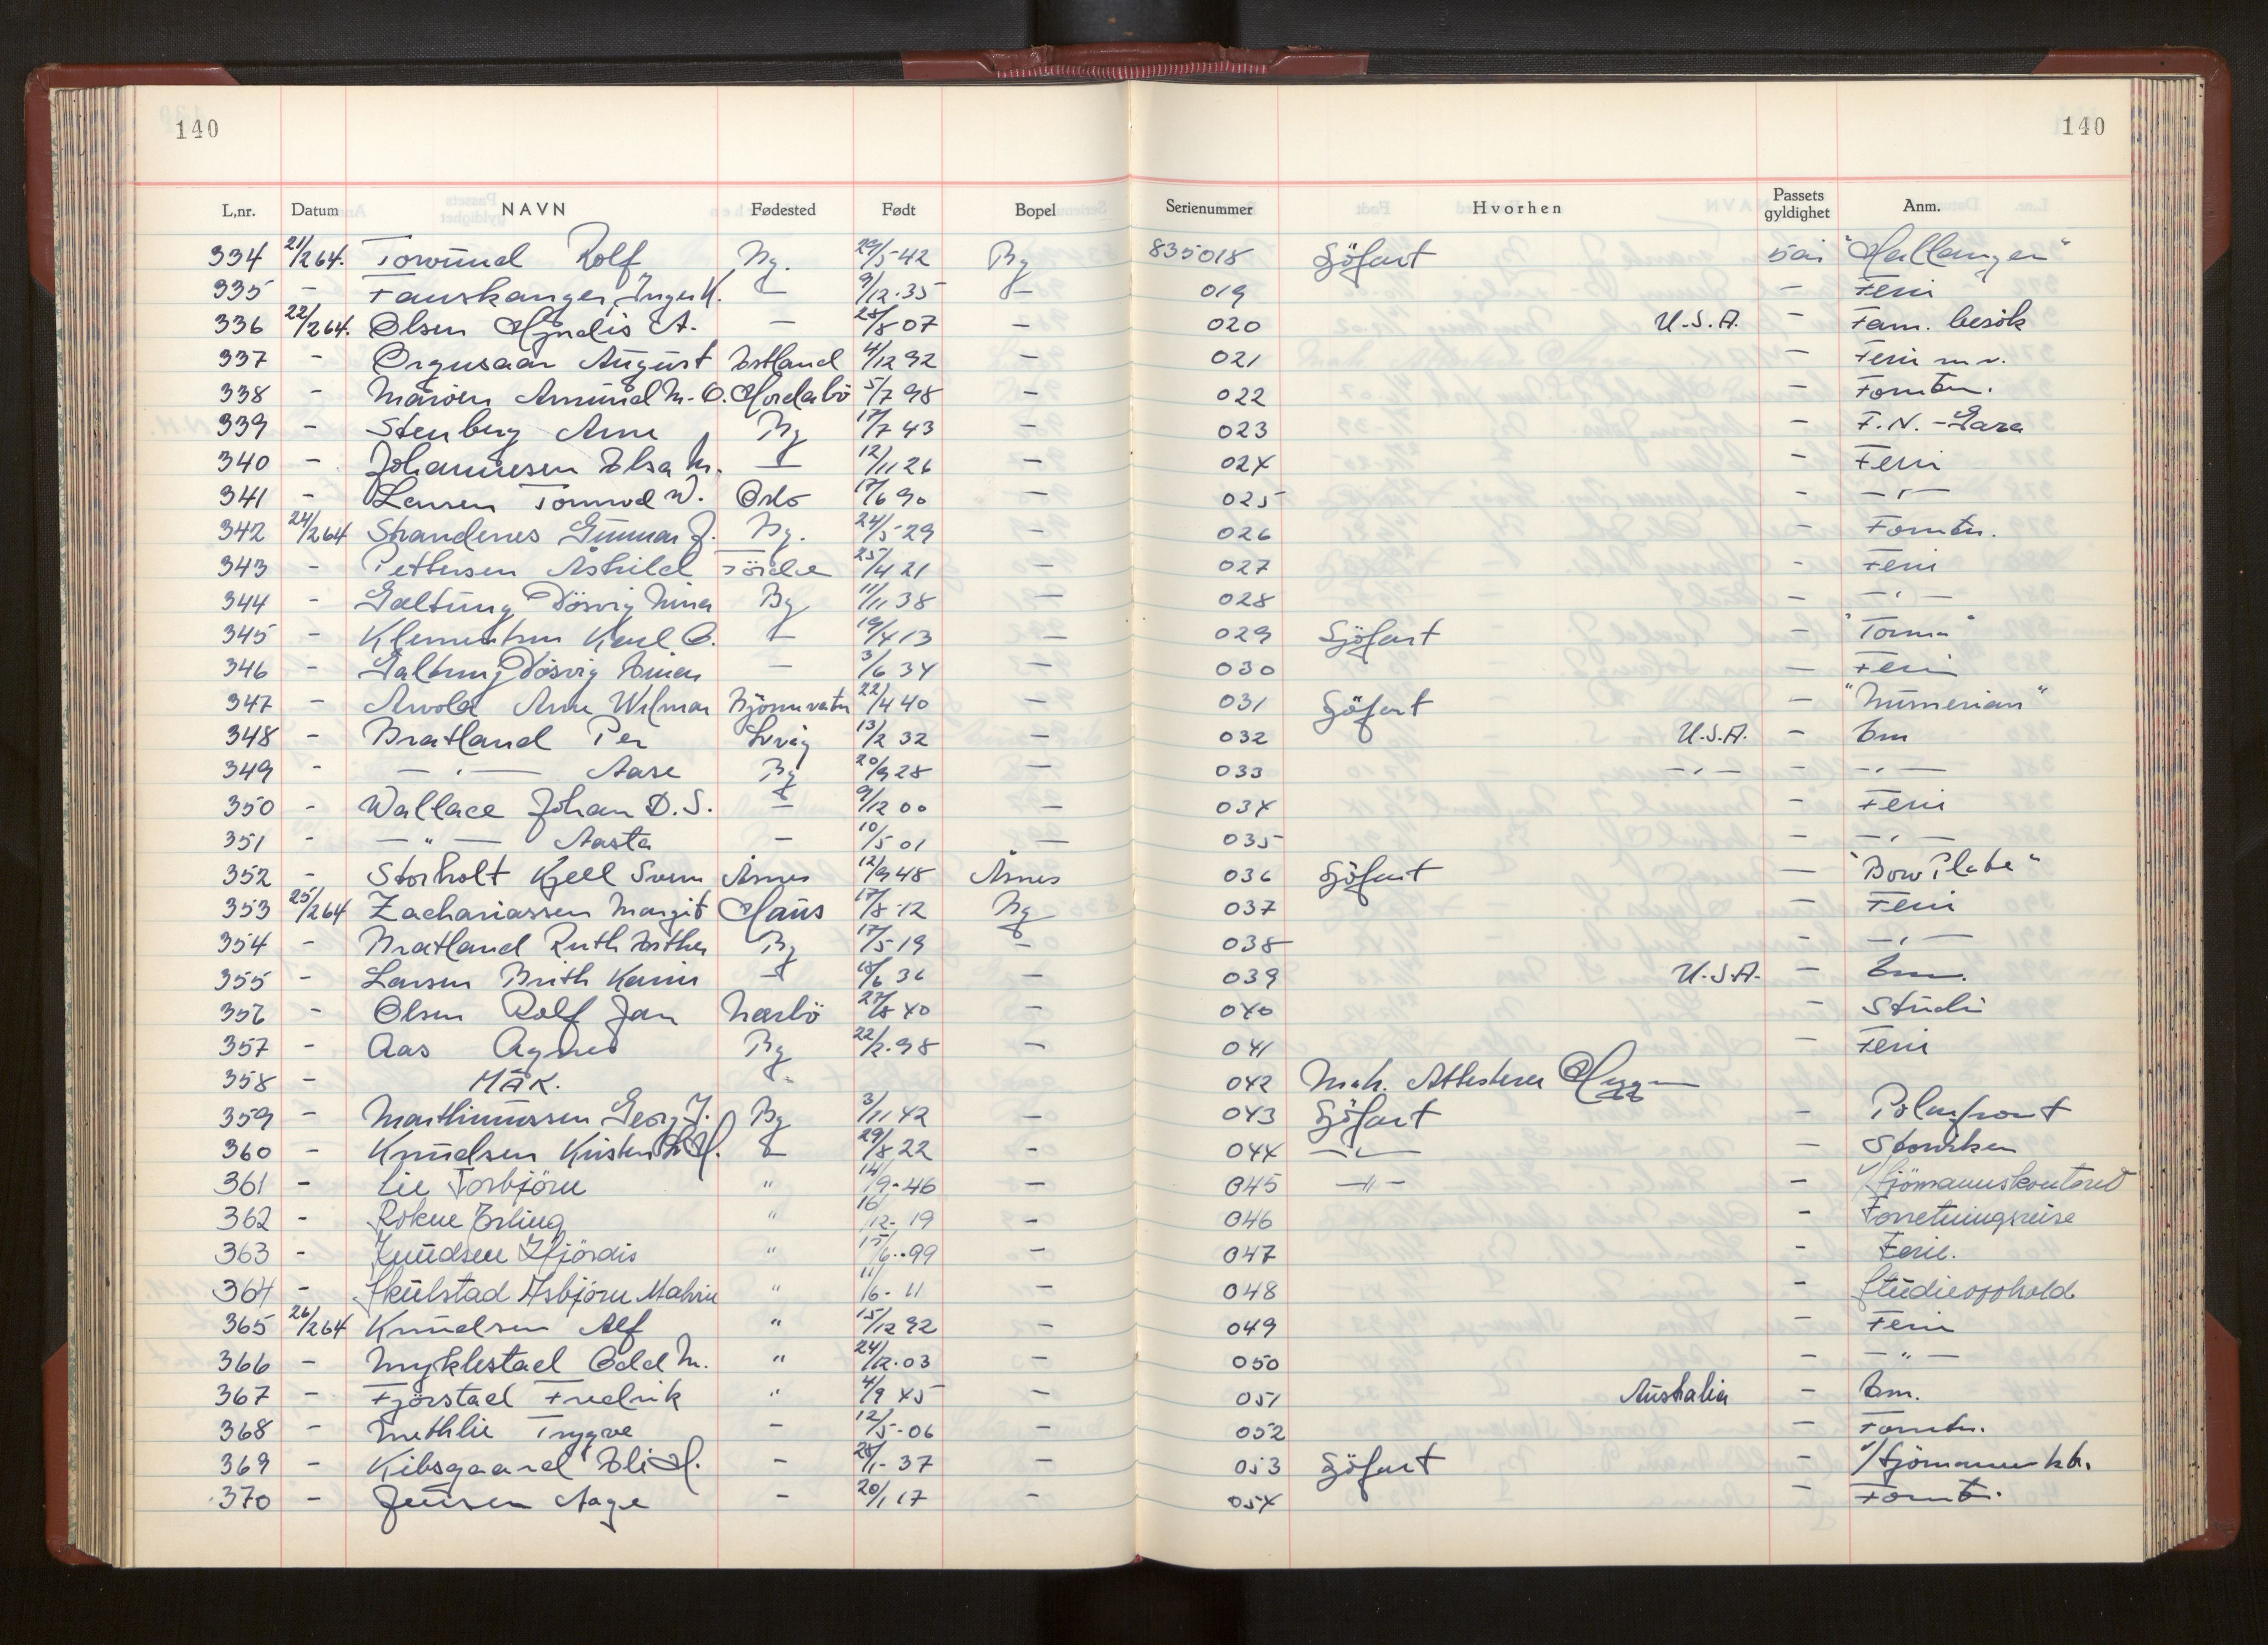 140 140
L.nr. Datum NAVN Fødested Født Bopel Serienummer Hvorhen Passets gyldighet Anm.
334 21/2 64. Torvund Rolf Bg. 29/5-42 Bg 835018 Sjöfart 5 år "Hallanger"
335 - Fauskanger, Inger K. — 9/12-35 — 019 — Ferie
336 22/2 64. Olsen Hjørdis A. — 28/8 07 — 020 U.S.A. — Fam. besök
337 - Orgusaar August Estland 4/12 92 — 021 — Ferie m.v.
338 - Amund M. O. Hordabö 5/7 98 — 022 — Forretn.
339 - Stenberg Arne Bg 17/7 43 — 023 — F.N. - Gaza
340 - Johannesen Elsa M. — 12/11 26 — 024 — Ferie
341 - Larsen Tormod W. Oslo 17/6 90 — 025 — —"—
342 24/2 64 Strandenes Gunnar J. Bg. 24/5-29 — 026 — Forretn.
343 - Pettersen Åshild Förde 25/4 21 — 027 — Ferie
344 - Galtung Døsvig Nina Bg 11/11 38 — 028 — —"—
345 - Klementsen Karl O. — 19/4 13 — 029 Sjöfart — "Torma"
346 - Galtung Døsvig Einar — 3/6 34 — 030 — Ferie
347 - Arvola Arne Wilmar Björnevatn 22/4 40 — 031 Sjöfart — "Numerian"
348 - Bratland Per 13/2 32 — 032 U.S.A. — Em
349 - —"— Aase Bg 20/9 28 — 033 —"— — —"—
350 - Wallace Johan D.S. — 9/12 00 — 034 — Ferie
351 - —"— Aasta — 10/5 01 — 035 — —"—
352 - Storholt Kjell Svein Åsnes 12/9 48 Åsnes 036 Sjöfart — "Bow Plate"
353 25/2 64 Zachariassen Margit Haus 17/8-12 Bg 037 — Ferie
354 - Bratland Ruth Esther Bg 17/5-19 — 038 — —"—
355 - Larsen Brith Karin — 18/6 36 — 039 U.S.A. — Em.
356 - Olsen Rolf Jan Nærbö 27/8 40 040 — Studie
357 - Aas Agnes Bg 22/2-98 — 041 — Ferie
358 - MAK. 042 Mak. Attesteres
359 - Marthinussen Georg J. Bg 3/11 42 — 043 Sjöfart — Polarfront
360 - Knudsen Kristen H. — 29/8 22 - 044 —"— —
361 - Lie Torbjörn " 14/9-46 — 045 —"— - v/Sjömannskontoret
362 - Rokne Erling " 16/12-19 - 046 - Forretningsreise
363 - Knudsen Hjördis " 15/6-99 - 047 - Ferie.
364 - Skulstad Asbjörn Mahrin " 11/6-11 — 048 - Studieopphold
365 26/2 64 Knudsen Alf " 15/12 92 — 049 — Ferie
366 - Myklestad Odd M. " 24/12-03 — 050 — —"—
367 - Fjörstad Fredrik " 4/9 45 — 051 Australia — Em.
368 - Methlie Trygve - 12/5-06 — 052 — Forretn.
369 - Kibsgaard Eli H. - 28/1-37 — 053 Sjöfart — v/Sjömannskt.
370 - Jensen Aage - 20/1 17 — 054 — Forretn.